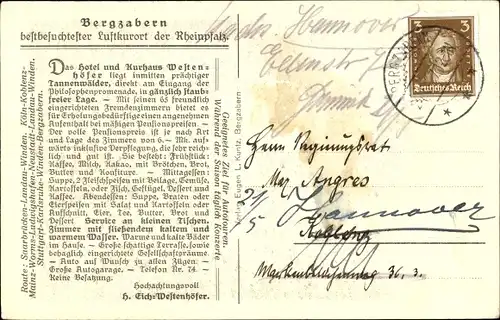 Bergzabern
bestbesuchtester Luftkurort der Rheinpfalz.
Das Hotel und Kurhaus Westen-
höfer liegt inmitten prächtiger
Tannenwälder, direkt am Eingang der
Philosophenpromenade, in gänzlich staub-
freier Lage. — Mit seinen 65 freundlich
eingerichteten Fremdenzimmern bietet es
für Erholungsbedürftige einen angenehmen
Aufenthalt bei mäßigen Pensionspreisen. —
Der volle Pensionspreis ist je nach Art
und Lage des Zimmers von 6.— Mk. auf-
wärts inklusive Verpflegung, die sehr reich-
lich und gut ist. Sie besteht: Frühstück:
Kaffee, Milch, Kakao, mit Brötchen, Brot,
Butter und Konfiture. — Mittagessen:
Suppe, 2 Fleischspeisen mit Beilage, Gemüse,
Kartoffeln, oder Fisch, Geflügel, Dessert und
Kaffee. Abendessen: Suppe, Braten oder
kalte Speisen mit Salat und Kartoffeln oder
Rufschnitt, Eier, Tee, Butter, Brot und
Dessert. Service an kleinen Tischen.
Zimmer mit fließendem kaltem und
warmem Wasser. — Warme und kalte
Bäder im Hause. — Große schaffige Terrasse, sowie
behaglich eingerichtete Gesellschaftsräume.
— Auto auf Wunsch zu allen Zügen. —
Große Autogarage. — Telefon Nr. 74. —
Reine Besatzung.
Hochachtungsvoll
H. Eich-Westenhöfer.
Route: Saarbrücken-Landau-Winden. Köln-Koblenz-
Mainz-Worms-Ludwigshafen-Neustadt-Landau-Winden.
Stuttgart-Karlsruhe-Winden-Bergzabern.
Geeignetes Ziel für Autotouren.
Während der Saison täglich Konzerte
Kuntz, Bergzabern
3 3
Deutsches Reich
Hannover
Herrn Regierungsrat
Max Angres
Hannover
Koblenz
36. 3.